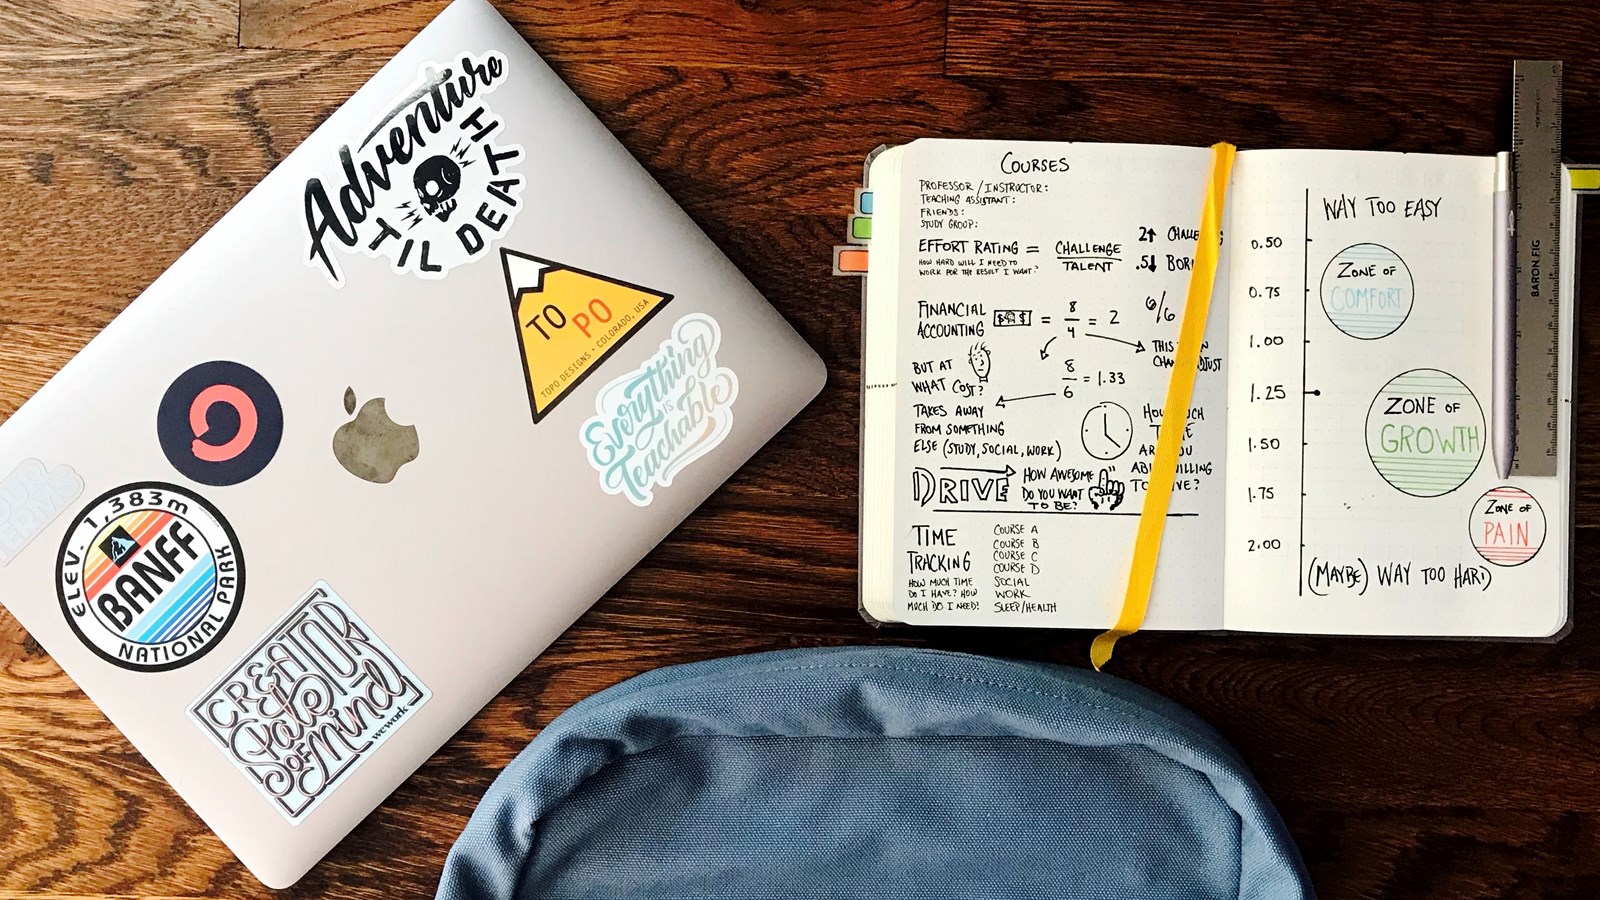 Adventure
'TIL DEATH
TO
PO
TOPO DESIGNS • COLORADO, USA
Everything
is
Teachable
ELEV. 1,383m
BANFF
NATIONAL PARK
CREATOR
State
OF
Mind
wework
COURSES
PROFESSOR / INSTRUCTOR:
TEACHING ASSISTANT:
FRIENDS:
STUDY GROUP:
EFFORT RATING = CHALLENGE
TALENT
HOW HARD WILL I NEED TO
WORK FOR THE RESULT I WANT?
2↑
.5↓
FINANCIAL
ACCOUNTING
$ $ = 8/4 = 2
6/6
THIS
BUT AT
WHAT COST?
8/6 = 1.33
TAKES AWAY
FROM SOMETHING
ELSE (STUDY, SOCIAL, WORK)
DRIVE
HOW AWESOME
DO YOU WANT
TO BE?
TIME
TRACKING
HOW MUCH TIME
DO I HAVE? HOW
MUCH DO I NEED?
COURSE A
COURSE B
COURSE C
COURSE D
SOCIAL
WORK
SLEEP/HEALTH
WAY TOO EASY
0.50
ZONE OF
COMFORT
0.75
1.00
1.25
ZONE OF
GROWTH
1.50
1.75
ZONE OF
PAIN
2.00
(MAYBE) WAY TOO HARD
BARON FIG